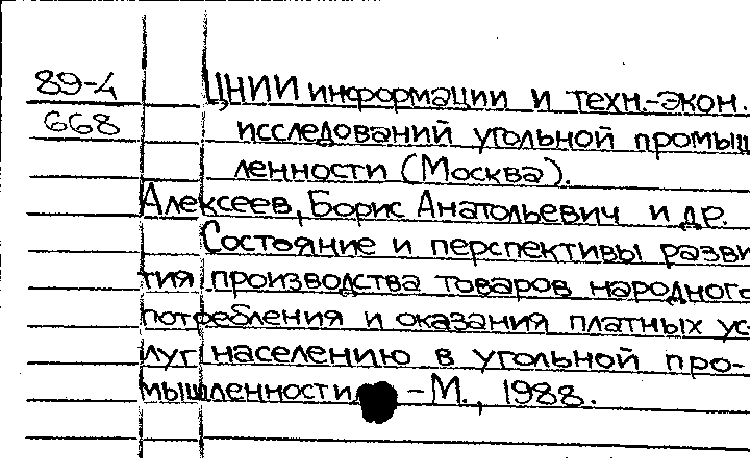 89-4 ЦНИИ информации и техн.-экон.
668 исследований угольной промыш
ленности (Москва).
Алексеев, Борис Анатольевич и др.
Состояние и перспективы разви
тия производства товаров народного
потребления и оказания платных ус
луг населению в угольной про-
мышленности -М., 1988.